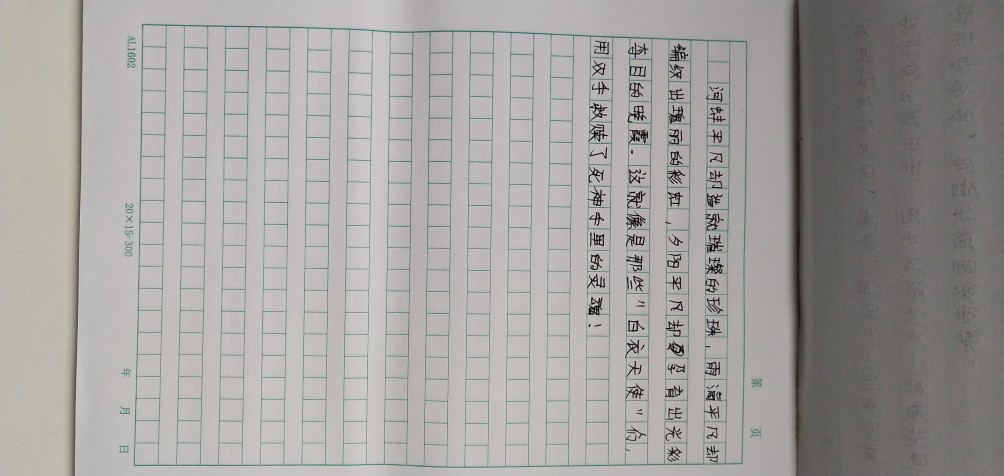 第 页
河蚌平凡却造就璀璨的珍珠，雨滴平凡却
编织出瑰丽的彩虹，夕阳平凡却孕育出光彩
夺目的晚霞。这就像是那些"白衣天使"们，
用双手救赎了死神手里的灵魂！
AL1602 20×15=300 年 月 日